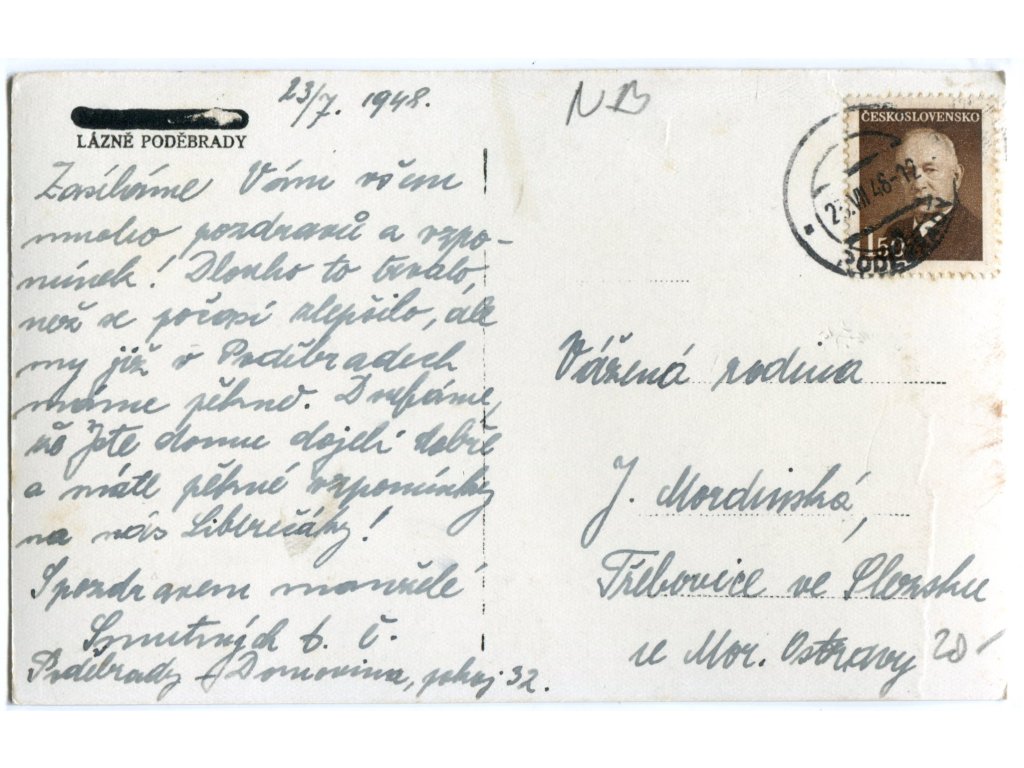 23/7. 1948.
NB
LÁZNĚ PODĚBRADY
Zasíláme Vám všem
mnoho pozdravů a vzpo-
mínek! Dlouho to trvalo,
než se počasí zlepšilo, ale
my již v Poděbradech
máme pěkně. Doufáme,
že Jste domu dojeli dobře
a máte pěkné vzpomínky
na nás Liberečáky!
S pozdravem manželé
Smutných
Poděbrady - Domovina, pokoj 32.
ČESKOSLOVENSKO
1.50
23.VII.48-12
PODĚBRADY
Vážená rodina
J. Mordinská,
Třebovice ve Slezsku
u Mor. Ostravy
20-